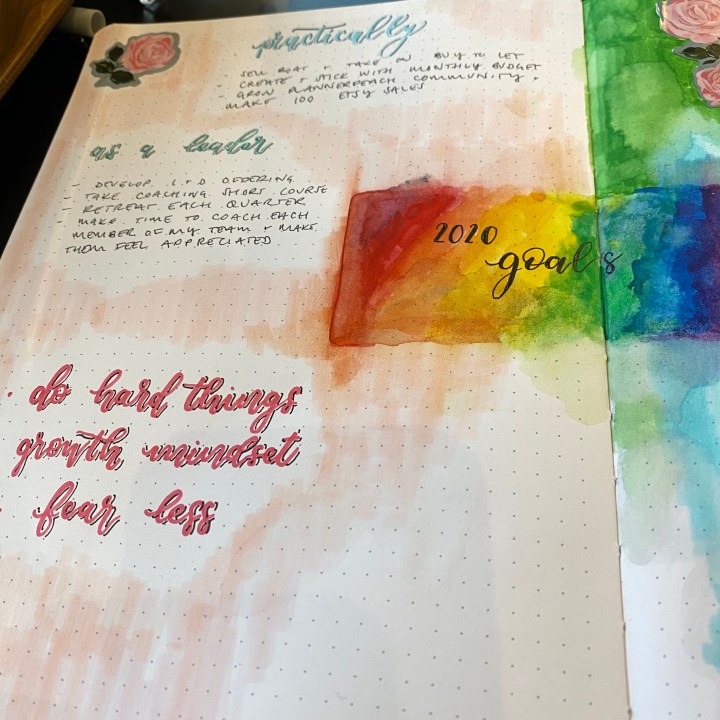 practically
- SELL BOAT + TAKE ON BUY TO LET
- CREATE + STICK WITH MONTHLY BUDGET
- GROW PLANNERPEACH COMMUNITY +
MAKE 100 ETSY SALES
as a leader
- DEVELOP L+D OFFERING
TAKE COACHING SHORT COURSE
- RETREAT EACH QUARTER
MAKE TIME TO COACH EACH
MEMBER OF MY TEAM + MAKE
THEM FEEL APPRECIATED
2020
goals
· do hard things
growth mindset
· fear less